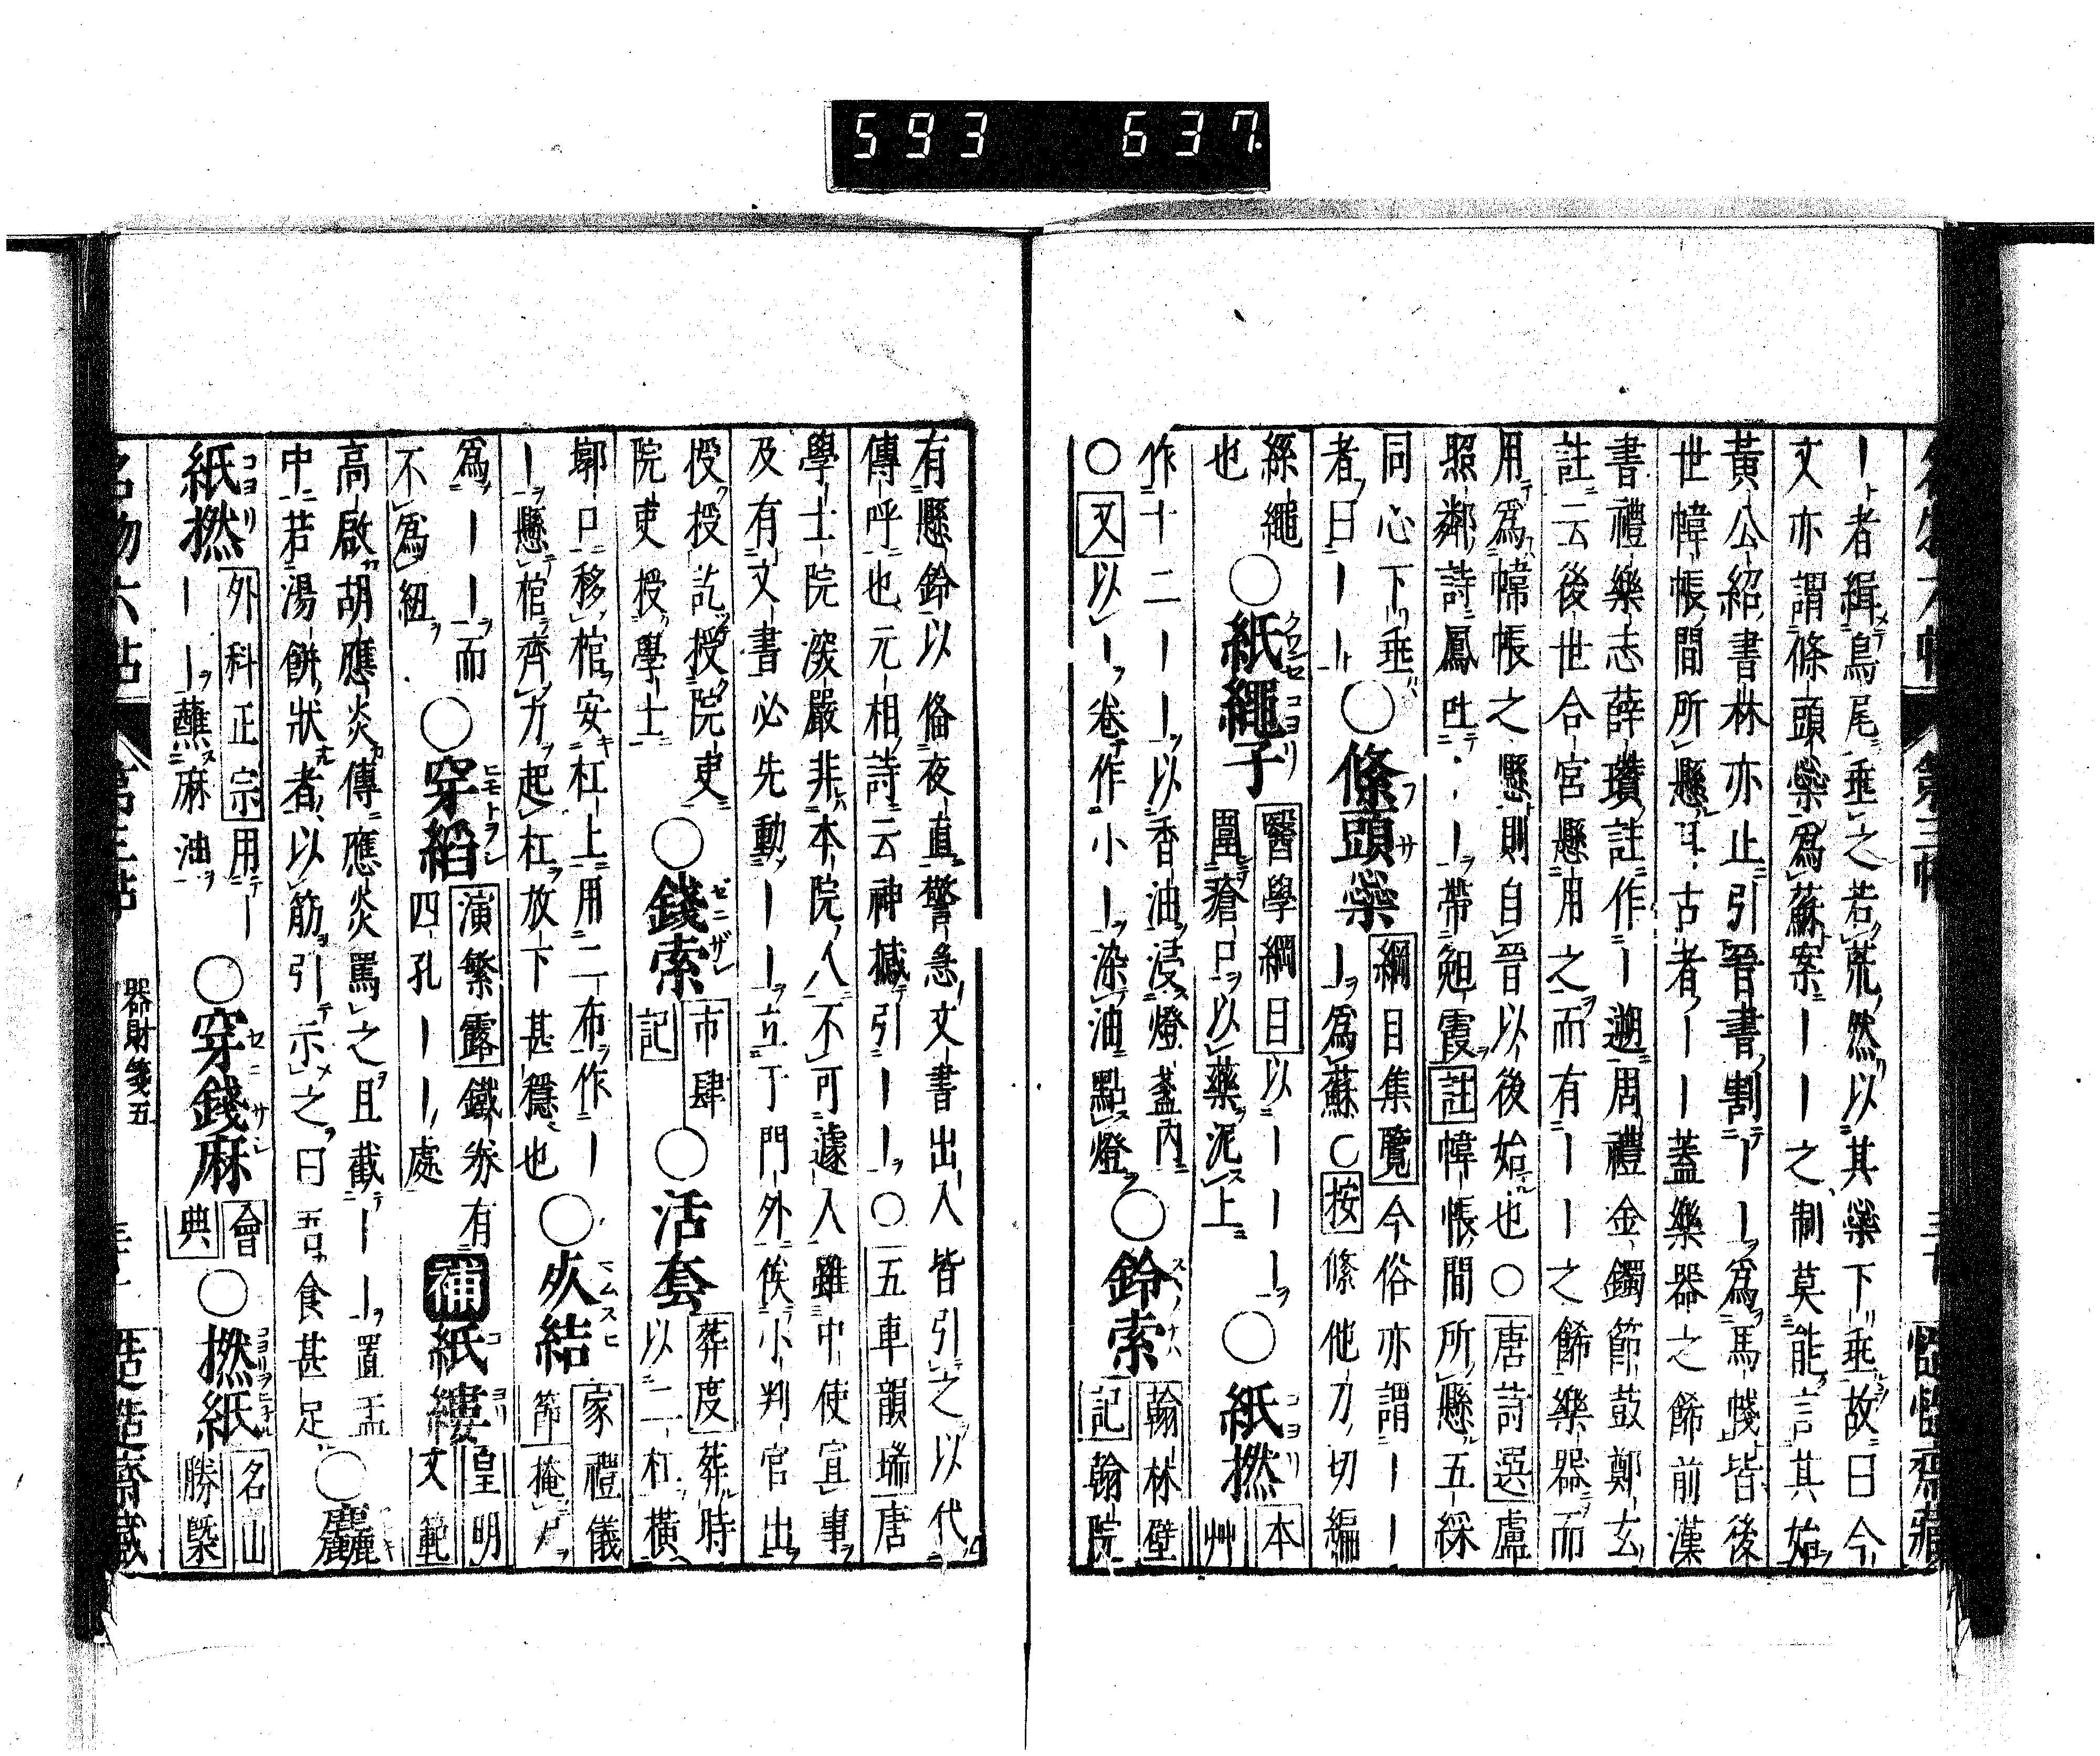 593 637.
｜者緝鳥尾垂之若旒然以其蘂下垂故曰今
文亦謂條頭蘂爲蘇案｜｜之制莫能言其始
黃公紹書林亦止引晉書割｜｜爲馬幩皆後
世幃帳間所懸耳古者｜｜蓋樂器之飾前漢
書禮樂志薛瓚註作｜遡周禮金鐲節鼓鄭玄
註云後世合宮懸用之而有｜｜之飾樂器而
用爲幃帳之懸則自晉以後始也○唐詩選盧
照鄰詩鳳吐｜｜帶晚霞註幃帳間所懸五綵
同心下垂
者曰｜｜
○條頭蘂
｜爲蘇○按絛他刀切編
綱目集覽今俗亦謂｜｜
絲繩
也
○紙繩子
醫學綱目以｜｜｜
圍瘡口以藥泥上
○紙撚
本
艸
作十二｜｜以香油浸燈盞內
○又以｜卷作小｜染油點燈
○鈴索
翰林壁
記翰院
有懸鈴以俻夜直警急文書出入皆引之以代
傳呼也元相詩云神撼引｜｜○五車韻瑞唐
學士院深嚴非本院人不可遽入雖中使宣事
及有文書必先動｜｜立于門外俟小判官出
授授訖授院吏
院吏授學士
○錢索
市肆
記
○活套
葬度葬時
以二杠橫
墎口移棺安杠上用二布作｜
｜懸棺齊力起杠放下甚穩也
○灰結
家禮儀
節掩尸
爲｜｜而
不爲紐
○穿縚
演繁露鐵券有
四孔｜｜處
補紙縷
皇明
文範
高啟胡應炎傳應炎罵之且截｜｜置盂
中若湯餅狀者以筯引示之曰吾食甚足
○麤
紙撚
外科正宗用｜
｜｜蘸麻油
○穿錢麻
會
典
○撚紙
名山
勝槩
器財箋五